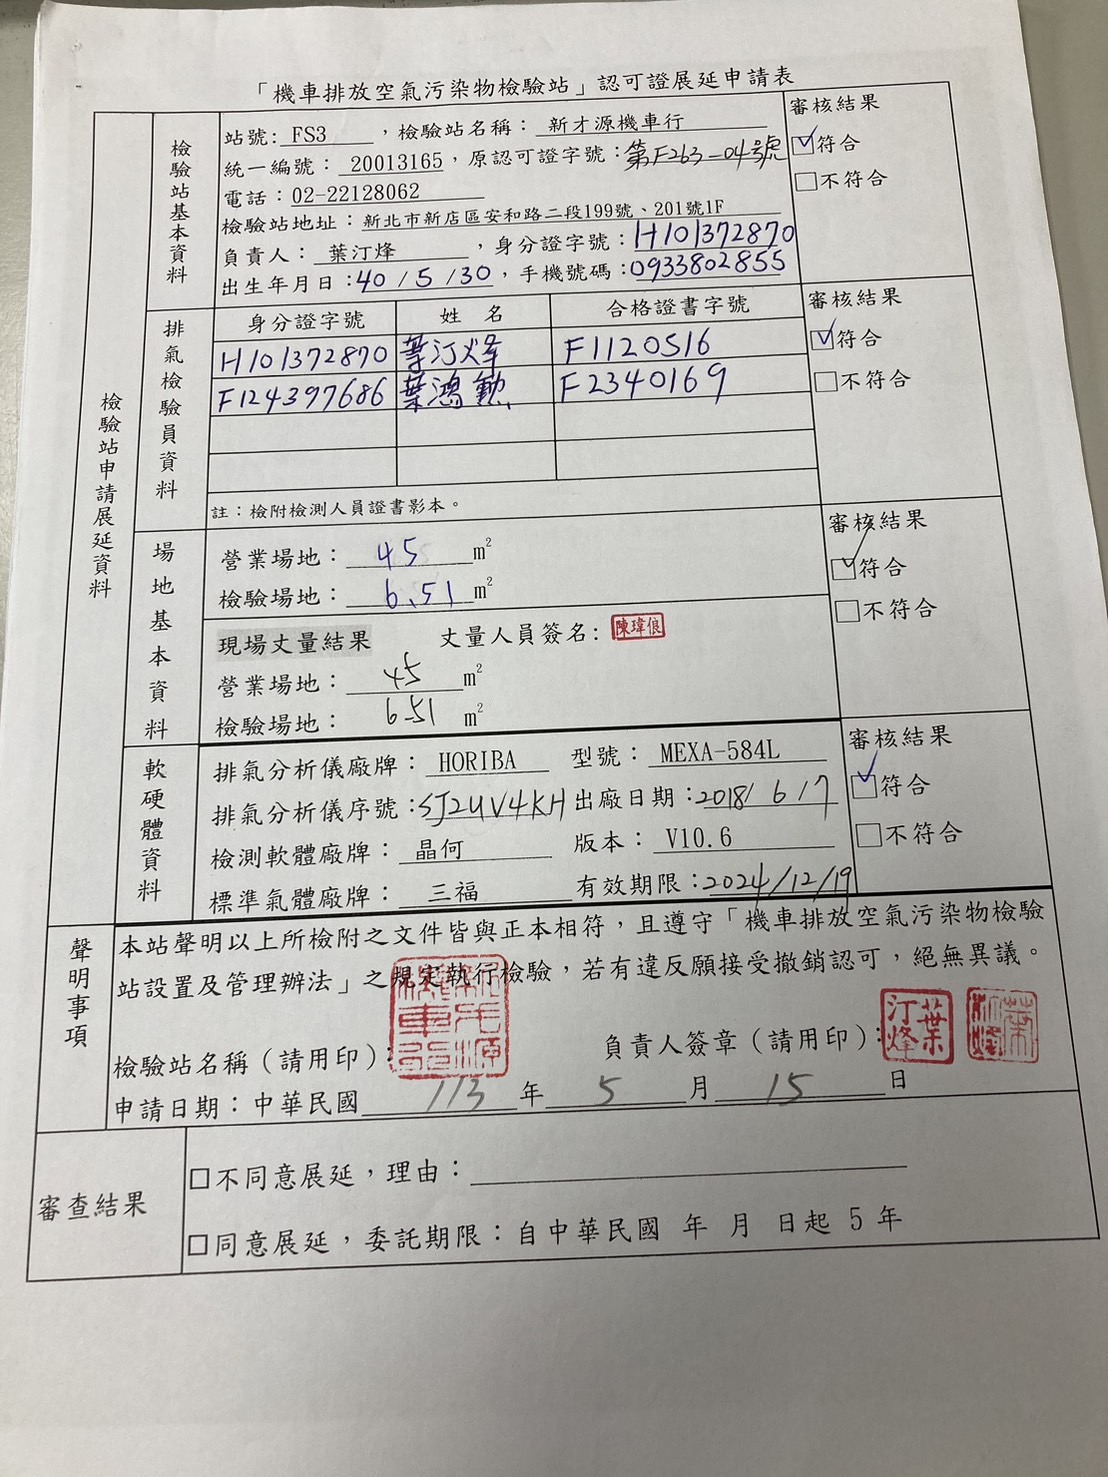 「機車排放空氣污染物檢驗站」認可證展延申請表
檢驗站申請展延資料
檢驗站基本資料
站號: FS3 ，檢驗站名稱： 新才源機車行
統一編號： 20013165，原認可證字號：第F263-04號
電話：02-22128062
檢驗站地址：新北市新店區安和路二段199號、201號1F
負責人： 葉汀烽 ，身分證字號：H101372870
出生年月日：40/5/30，手機號碼：0933802855
審核結果
☑符合
□不符合
排氣檢驗員資料
身分證字號 姓 名 合格證書字號
H101372870 葉汀烽 F1120516
F124397686 葉鴻勲 F2340169
註：檢附檢測人員證書影本。
審核結果
☑符合
□不符合
場地基本資料
營業場地： 45 m²
檢驗場地： 6.51 m²
現場丈量結果 丈量人員簽名:
營業場地： 45 m²
檢驗場地： 6.51 m²
審核結果
☑符合
□不符合
軟硬體資料
排氣分析儀廠牌： HORIBA 型號： MEXA-584L
排氣分析儀序號：SJ2UV4KH 出廠日期：2018/6/7
檢測軟體廠牌： 晶何 版本： V10.6
標準氣體廠牌： 三福 有效期限：2024/12/19
審核結果
☑符合
□不符合
聲明事項
本站聲明以上所檢附之文件皆與正本相符，且遵守「機車排放空氣污染物檢驗
站設置及管理辦法」之規定執行檢驗，若有違反願接受撤銷認可，絕無異議。
檢驗站名稱（請用印）： 負責人簽章（請用印）：
新才源機車行
葉汀烽
申請日期：中華民國 113 年 5 月 15 日
審查結果
□不同意展延，理由：
□同意展延，委託期限：自中華民國 年 月 日起 5 年